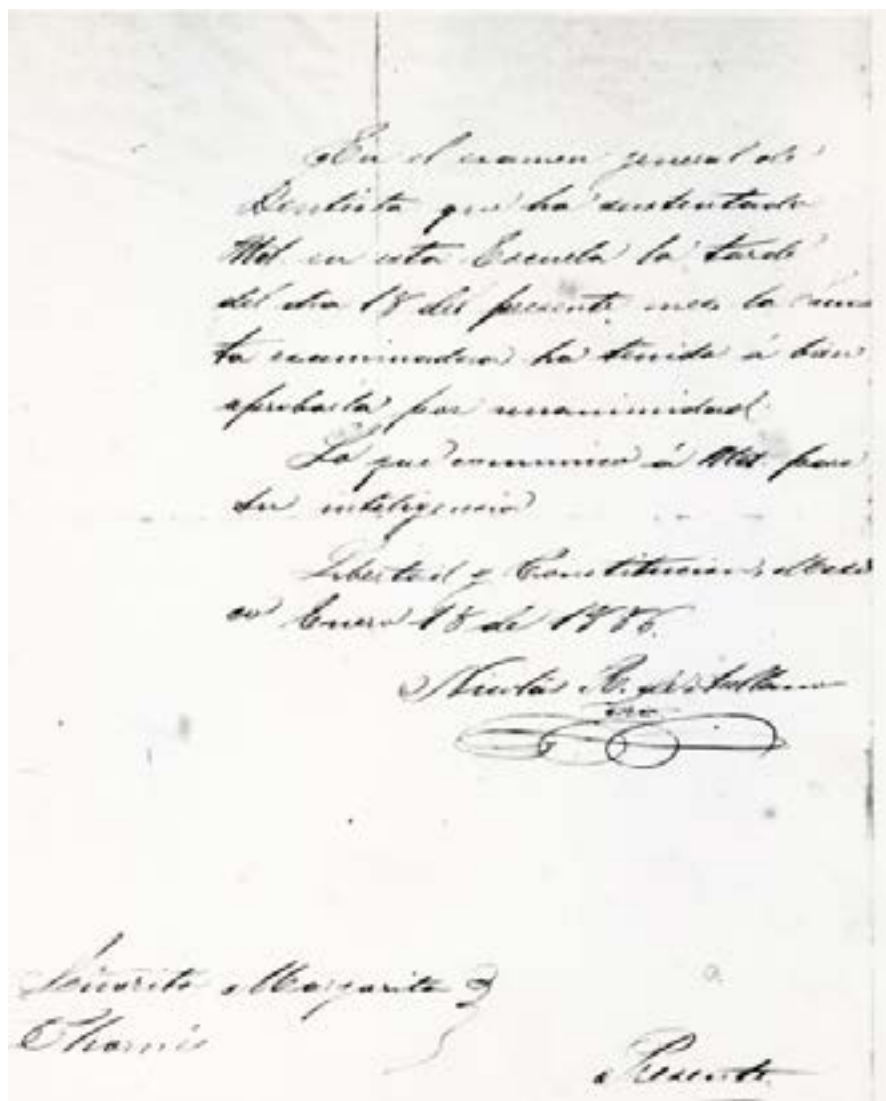 En el examen general de
Dentista que ha sustentado
Ud. en esta Escuela la tarde
del dia 18 del presente mes, la
ta examinadora ha tenido á bien
aprobarla por unanimidad.
Lo que comunico á Ud. para
su inteligencia
Libertad y Constitucion, Mexi
co Enero 18 de 1886.
Nicolás R. de Arellano
Srio
Señorita Margarita
Chorné
Presente.